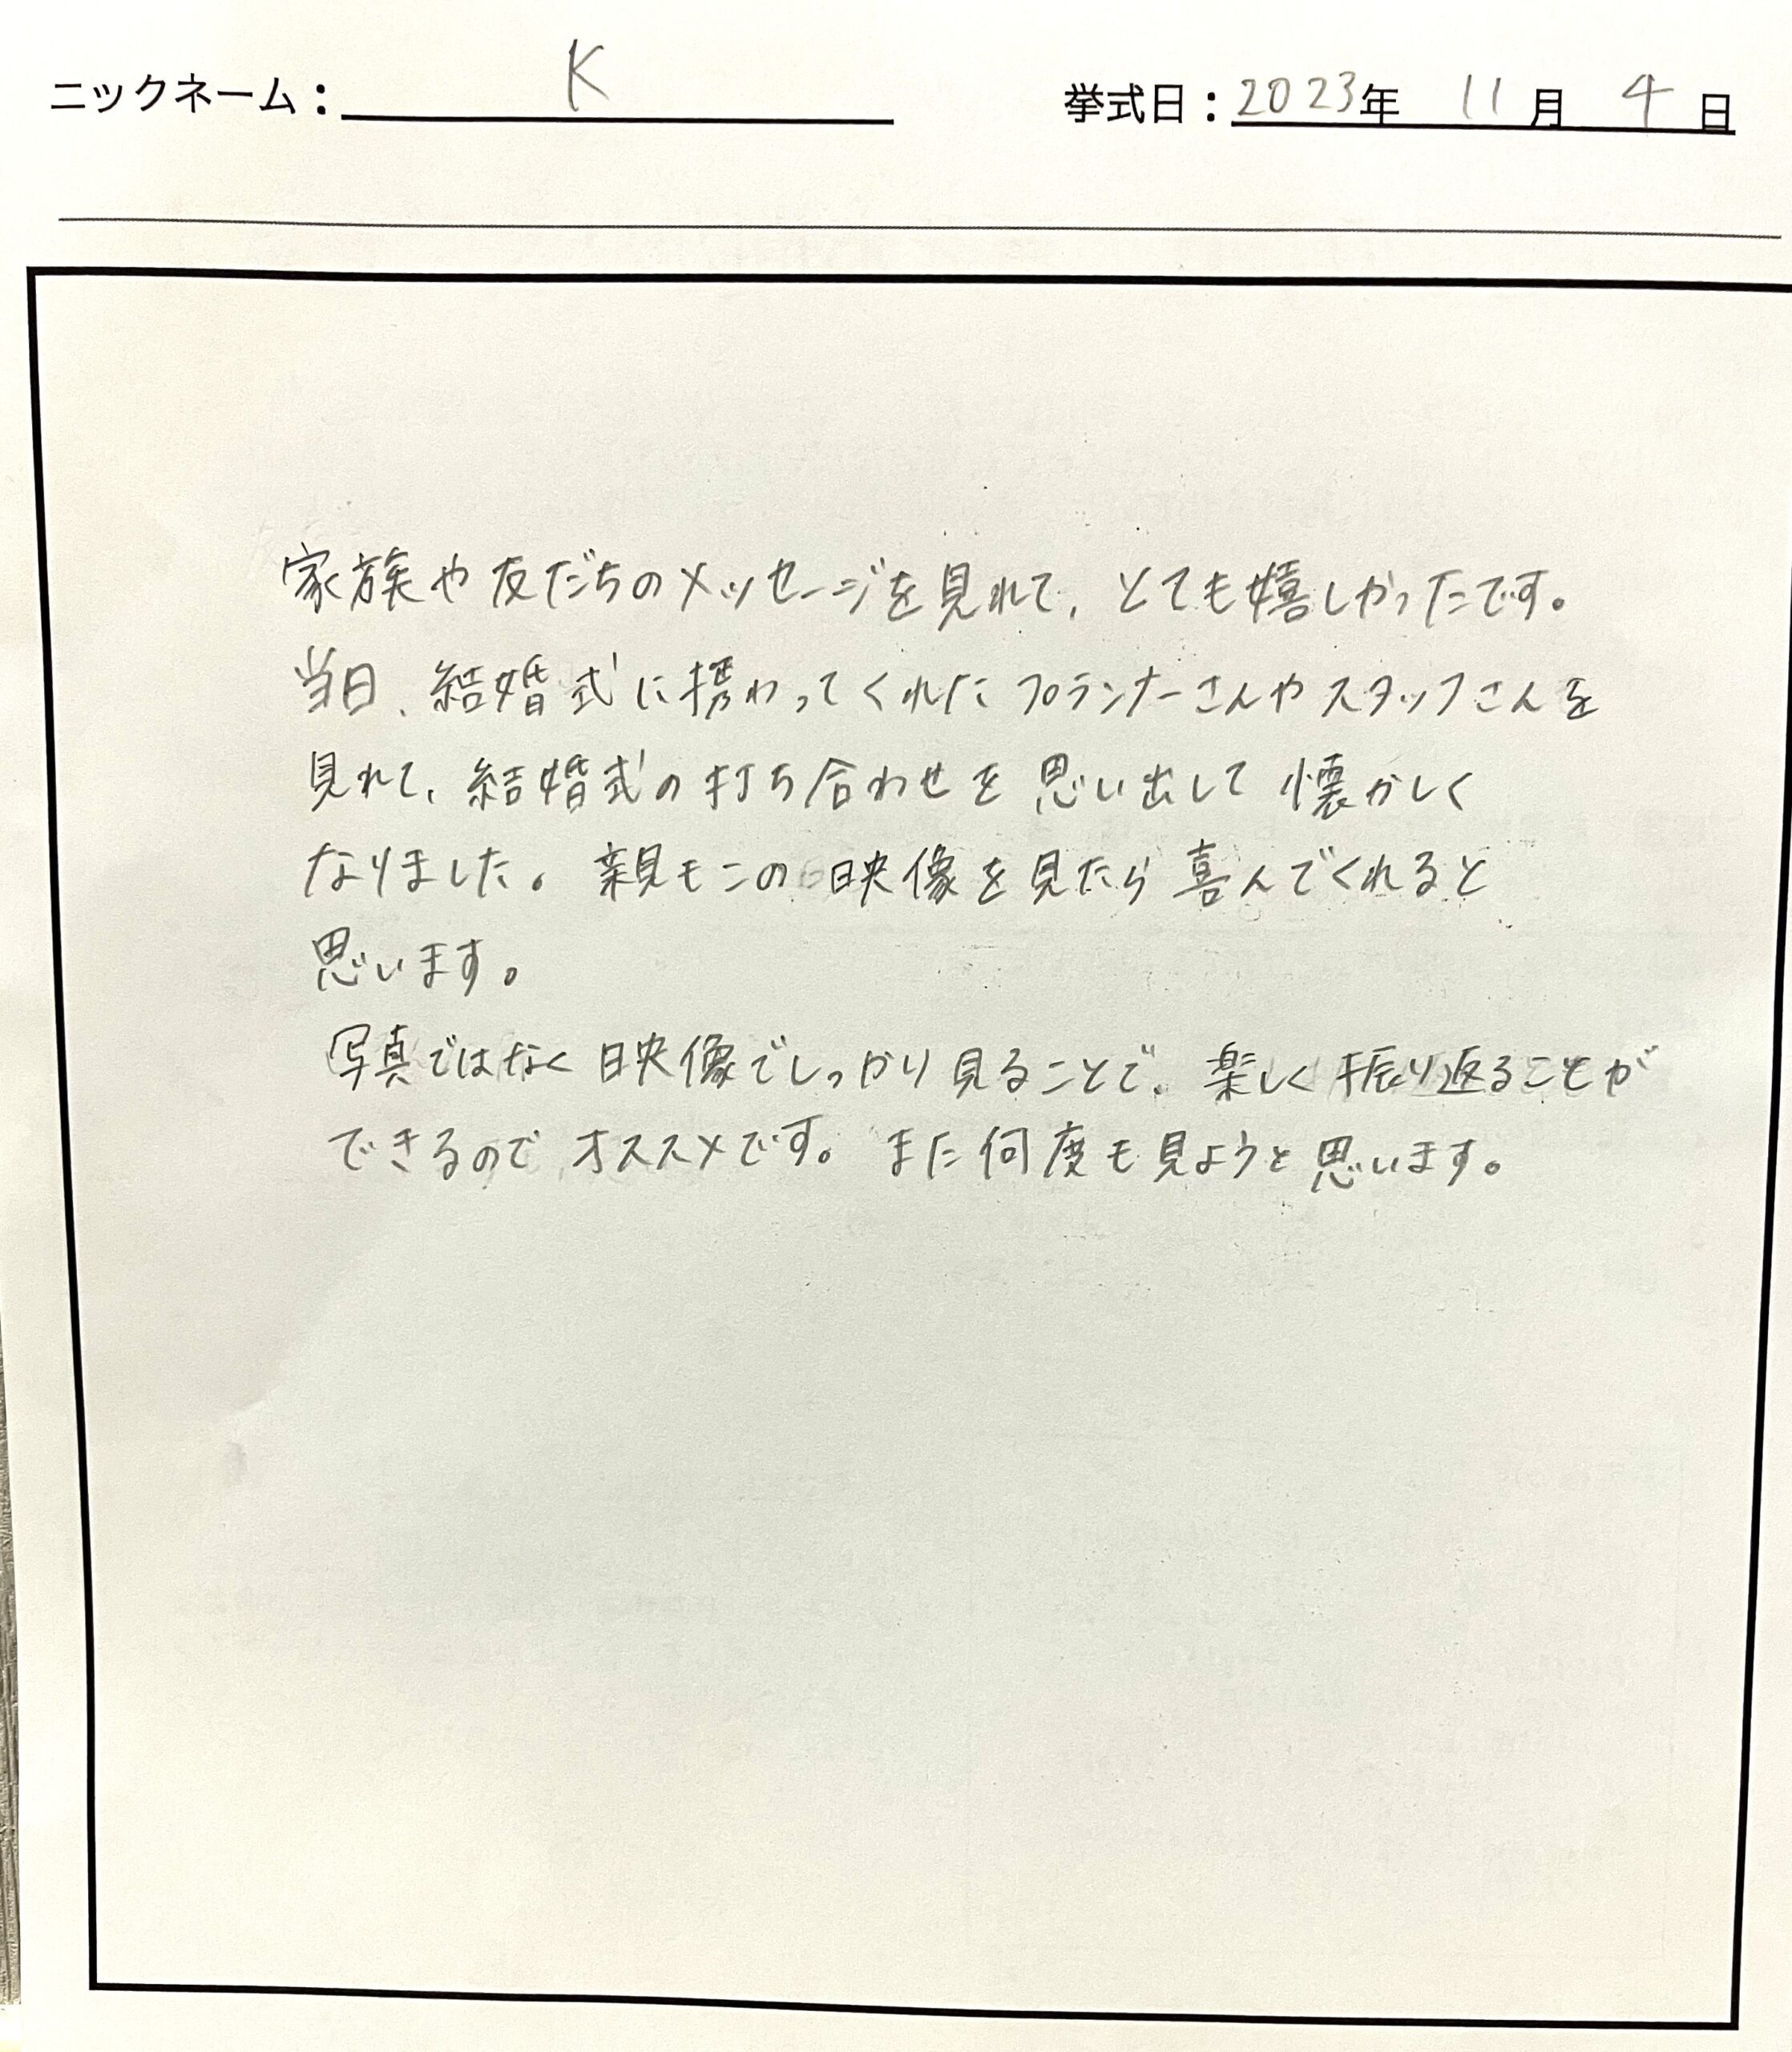 ニックネーム：K 挙式日：2023年 11月 4日
家族や友だちのメッセージを見れて、とても嬉しかったです。
当日、結婚式に携わってくれたプランナーさんやスタッフさんを
見れて、結婚式の打ち合わせを思い出して懐かしく
なりました。親もこの映像を見たら喜んでくれると
思います。
写真ではなく映像でしっかり見ることで、楽しく振り返ることが
できるのでオススメです。また何度も見ようと思います。